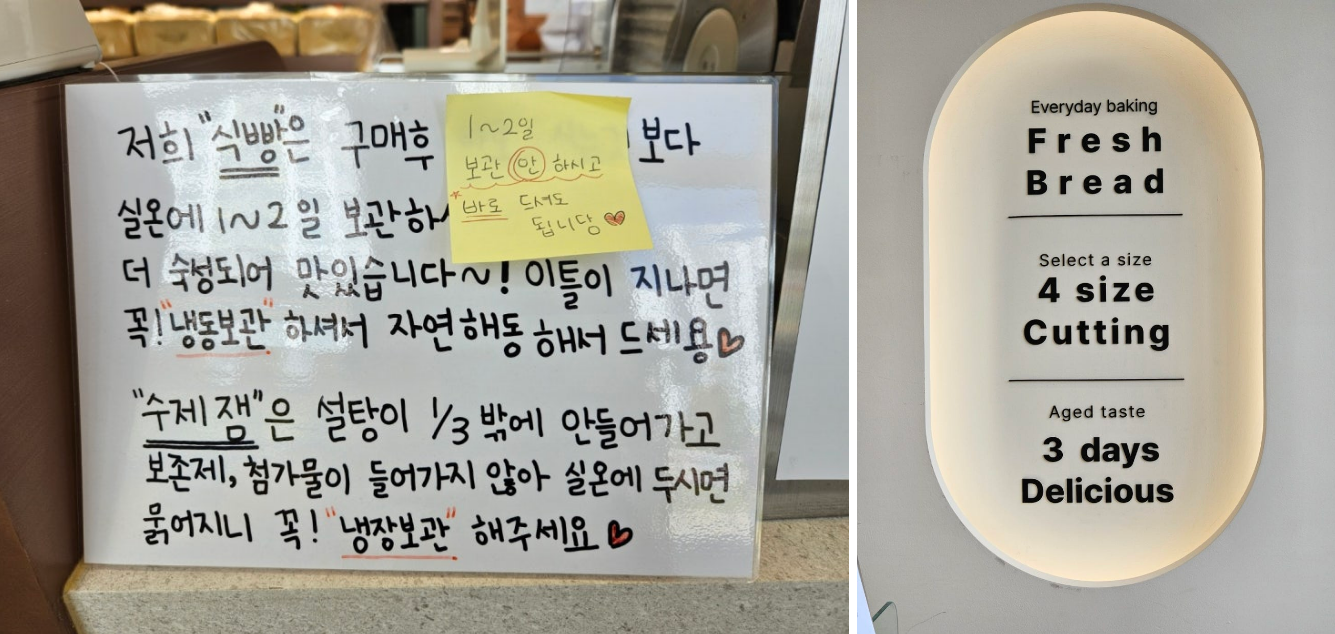 저희 "식빵"은 구매후 보다
실온에 1~2일 보관하
더 숙성되어 맛있습니다~! 이틀이 지나면
꼭! "냉동보관" 하셔서 자연해동 해서 드세용
"수제 잼"은 설탕이 1/3 밖에 안들어가고
보존제, 첨가물이 들어가지 않아 실온에 두시면
묽어지니 꼭! "냉장보관" 해주세요
1~2일
보관 안 하시고
*바로 드셔도
됩니당
Everyday baking
Fresh
Bread
Select a size
4 size
Cutting
Aged taste
3 days
Delicious